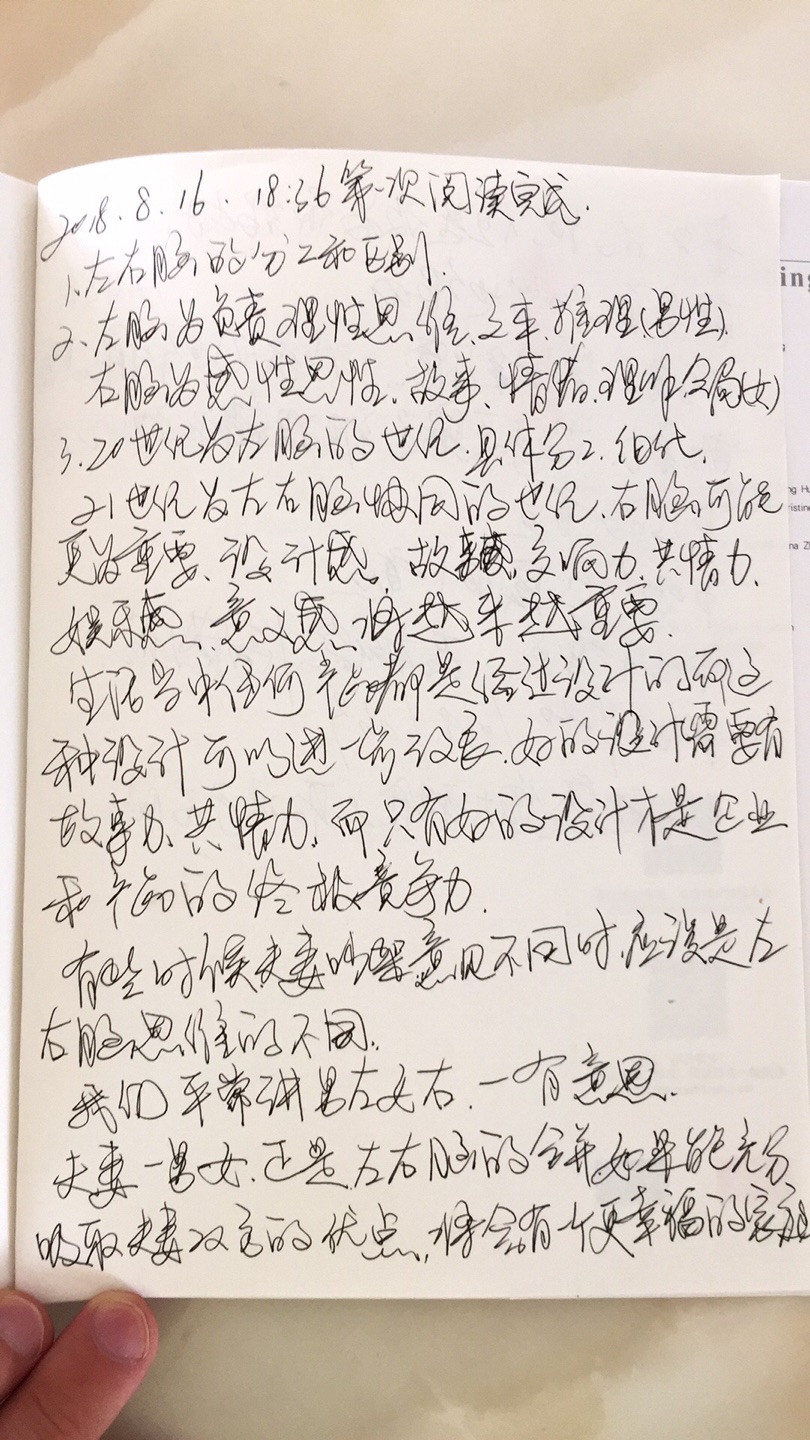 2018.8.16. 18:36第一次阅读完成.
1.左右脑的分工和区别.
2.左脑为负责理性思维、文本、推理(男性).
右脑为感性思性、故事、情绪、理解全局(女)
3.20世纪为左脑的世纪.具体分工.细化.
21世纪为左右脑协同的世纪.右脑可能
更为重要、设计感、故事感、交响力、共情力、
娱乐感、意义感、将越来越重要.
生活当中任何产品都是经过设计的而这
种设计可以进一步改良.好的设计需要有
故事力、共情力,而只有好的设计才是企业
和产品的终极竞争力.
有些时候夫妻吵架意见不同时,应该是左
右脑思维的不同.
我们平常讲男左女右.一有意思.
夫妻一男女.正是左右脑的合并如果能充分
吸取夫妻双方的优点,将会有一个更幸福的家庭
ing
ng Hu
ristine
na Zh